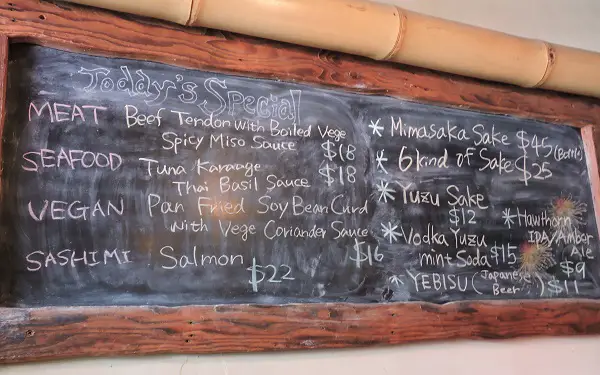 Toddy's Special
MEAT Beef Tendon with Boiled Vege
Spicy Miso Sauce $18
SEAFOOD Tuna Karaage $18
Thai Basil Sauce
VEGAN Pan Fried Soy Bean Curd
with Vege Coriander Sauce
$16
SASHIMI Salmon
$22
* Mimasaka Sake $45 (Bottle)
* 6 kind of Sake $25
* Yuzu Sake
$12
* Vodka Yuzu
mint Soda $15
* Hawthorn
IPA/Amber
Ale
$9
* YEBISU (Japanese
Beer) $11